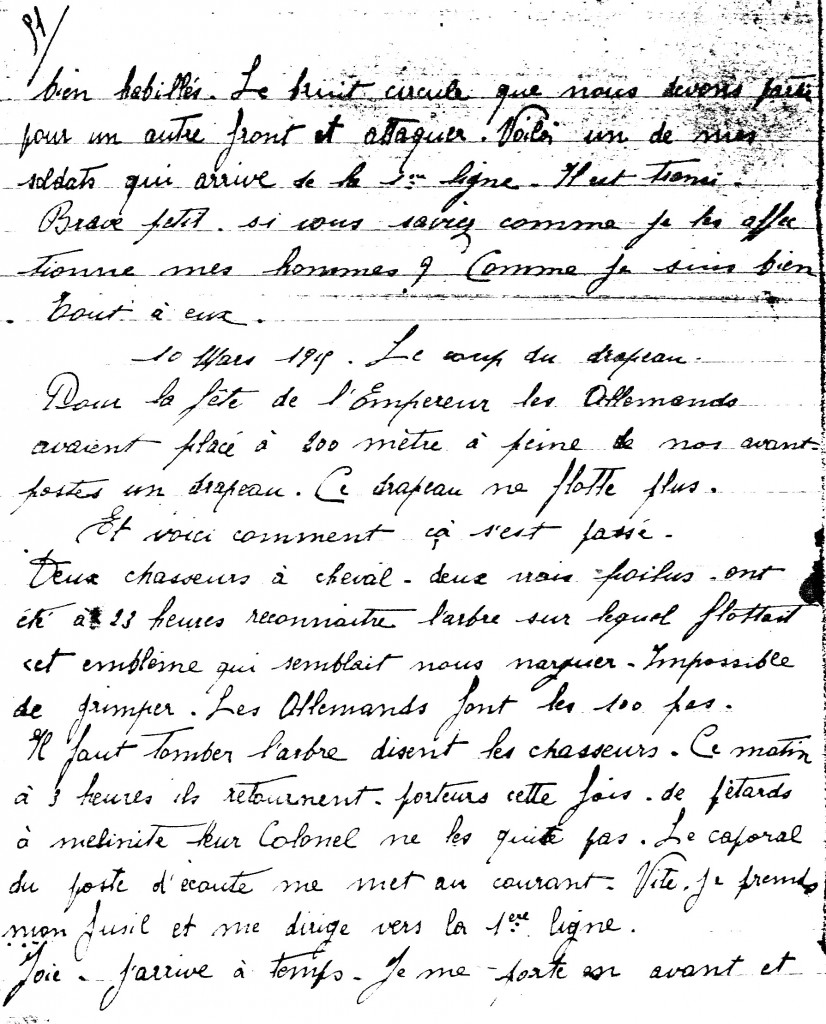 91/
bien habillés. Le bruit circule que nous devons partir
pour un autre front et attaquer. Voilà un de mes
soldats qui arrive de la 1ère ligne. Il est transi.
Brave petit. si vous saviez comme je les affec
tionne mes hommes ? Comme je suis bien
tout à eux.
10 Mars 1915. Le coup du drapeau.
Pour la fête de l'Empereur les Allemands
avaient placé à 200 mètre à peine de nos avant-
postes un drapeau. Ce drapeau ne flotte plus.
Et voici comment çà s'est passé.
Deux chasseurs à cheval - deux vrais poilus - ont
été à 23 heures reconnaitre l'arbre sur lequel flottait
cet emblème qui semblait nous narguer. Impossible
de grimper. Les Allemands font les 100 pas.
Il faut tomber l'arbre disent les chasseurs. Ce matin
à 3 heures ils retournent - porteurs cette fois - de pétards
à melinite leur Colonel ne les quitte pas. Le caporal
du poste d'écoute me met au courant. Vite. je prends
mon fusil et me dirige vers la 1ère ligne.
Joie - j'arrive à temps. Je me porte en avant et